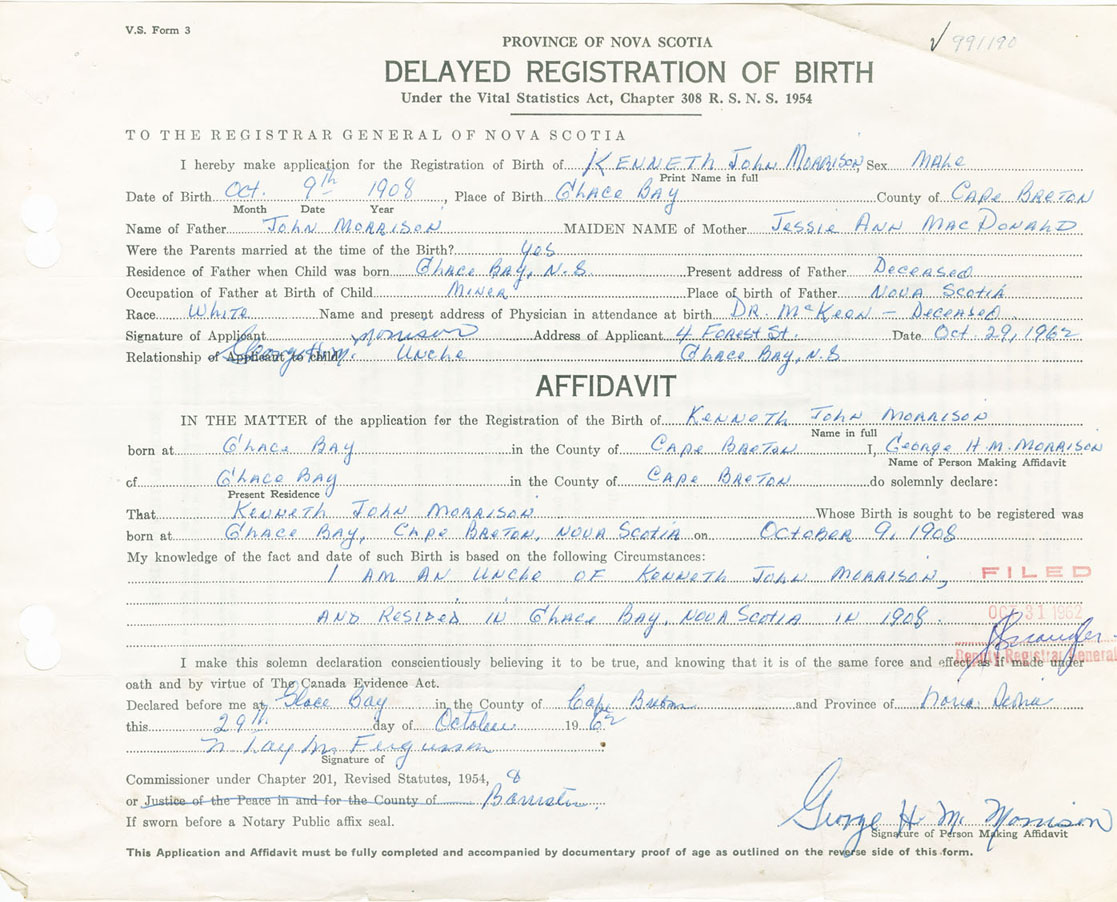 V.S. Form 3
✓ 991190
PROVINCE OF NOVA SCOTIA
DELAYED REGISTRATION OF BIRTH
Under the Vital Statistics Act, Chapter 308 R. S. N. S. 1954
TO THE REGISTRAR GENERAL OF NOVA SCOTIA
I hereby make application for the Registration of Birth of KENNETH JOHN MORRISON, Sex MALE
Print Name in full
Date of Birth OCT. 9th 1908, Place of Birth GLACE BAY County of CAPE BRETON
Month Date Year
Name of Father JOHN MORRISON MAIDEN NAME of Mother JESSIE ANN MACDONALD
Were the Parents married at the time of the Birth? yes
Residence of Father when Child was born GLACE BAY, N.S. Present address of Father DECEASED
Occupation of Father at Birth of Child MINER Place of birth of Father NOVA SCOTIA
Race WHITE Name and present address of Physician in attendance at birth DR. McKEON - DECEASED
Signature of Applicant George H. M. Morrison Address of Applicant 4 FOREST ST. Date OCT. 29, 1962
Relationship of Applicant to child UNCLE GLACE BAY, N.S
AFFIDAVIT
IN THE MATTER of the application for the Registration of the Birth of KENNETH JOHN MORRISON
Name in full
born at GLACE BAY in the County of CAPE BRETON I, GEORGE H.M. MORRISON
Name of Person Making Affidavit
of GLACE BAY in the County of CAPE BRETON do solemnly declare:
Present Residence
That KENNETH JOHN MORRISON Whose Birth is sought to be registered was
born at GLACE BAY, CAPE BRETON, NOVA SCOTIA on OCTOBER 9, 1908
My knowledge of the fact and date of such Birth is based on the following Circumstances:
I AM AN UNCLE OF KENNETH JOHN MORRISON,
FILED
AND RESIDED IN GLACE BAY, NOVA SCOTIA IN 1908.
OCT 31 1962
Deputy Registrar General
I make this solemn declaration conscientiously believing it to be true, and knowing that it is of the same force and effect as if made under
oath and by virtue of The Canada Evidence Act.
Declared before me at Glace Bay in the County of Cape Breton and Province of Nova Scotia
this 29th day of October 1962
Fergusson
Signature of
Commissioner under Chapter 201, Revised Statutes, 1954,
or Justice of the Peace in and for the County of Barrister
If sworn before a Notary Public affix seal.
George H. M. Morrison
Signature of Person Making Affidavit
This Application and Affidavit must be fully completed and accompanied by documentary proof of age as outlined on the reverse side of this form.